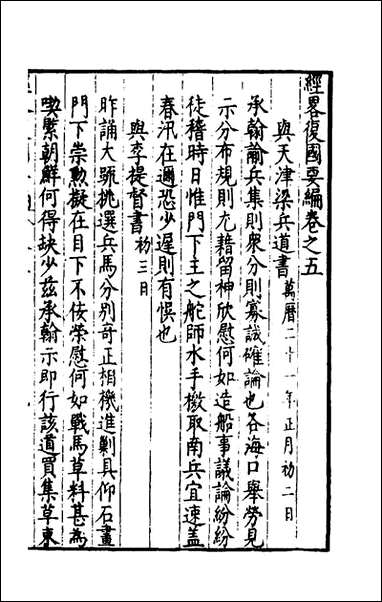 經畧復國要編卷之五
與天津梁兵道書萬曆二十一年正月初二日
承翰諭兵集則衆分則寡誠確論也各海口舉勞見
示分布規則尤藉留神欣慰何如造船事議論紛紛
徒稽時日惟門下主之舵師水手檄取南兵宜速盖
春汛在邇恐少遲則有悞也
與李提督書初三日
昨誦大疏挑選兵馬分別奇正相機進剿具仰石畫
門下崇勲擬在目下不佞榮慰何如戰馬草料甚為
喫緊朝鮮何得缺少兹承翰示即行該道買集草束